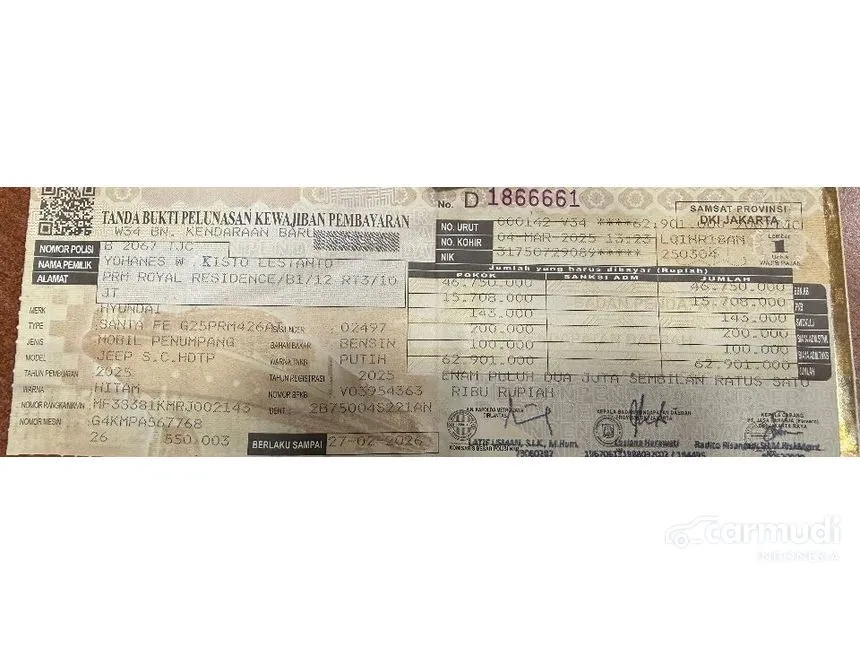 No. D 1866661
TANDA BUKTI PELUNASAN KEWAJIBAN PEMBAYARAN
W34 BN. KENDARAAN BARU
SAMSAT PROVINSI
DKI JAKARTA
NO. URUT 000142 V34 ****62,901.00
NO. KOHIR 04-MAR-2025 13:23 LQ1HR18AN
NIK 31750729089***** 250304
Lembar
1
Untuk
WAJIB PAJAK
NOMOR POLISI B 2067 TJC
NAMA PEMILIK YOHANES W KISTO LESTANTO
ALAMAT PRM ROYAL RESIDENCE/B1/12 RT3/10
JT
MERK HYUNDAI
TYPE SANTA FE G25PRM426A ISI SILINDER 02497
JENIS MOBIL PENUMPANG BAHAN BAKAR BENSIN
MODEL JEEP S.C.HDTP WARNA TNKB PUTIH
TAHUN PEMBUATAN 2025 TAHUN REGISTRASI 2025
WARNA HITAM NOMOR BPKB V03954363
NOMOR RANGKA/NIK MF3S381KMRJ002143 IDENT : 2B75004S221AN
NOMOR MESIN G4KMPA567768
26 550.003 BERLAKU SAMPAI 27-02-2026
Jumlah yang harus dibayar (Rupiah)
POKOK SANKSI ADM JUMLAH
46.750.000 46.750.000
15.708.000 15.708.000 PKB
143.000 143.000 SWDKLLJ
200.000 200.000 BIAYA ADM.STNK
100.000 100.000 BIAYA ADM.TNKB
62.901.000 62.901.000 JUMLAH
ENAM PULUH DUA JUTA SEMBILAN RATUS SATU
RIBU RUPIAH
DIRLANTAS
KEPALA BADAN PENDAPATAN DAERAH
KEPALA CABANG
LATIF USMAN, S.I.K, M.Hum.
Lusiana Herawati
Radito Risangadi
carmudi
INDONESIA